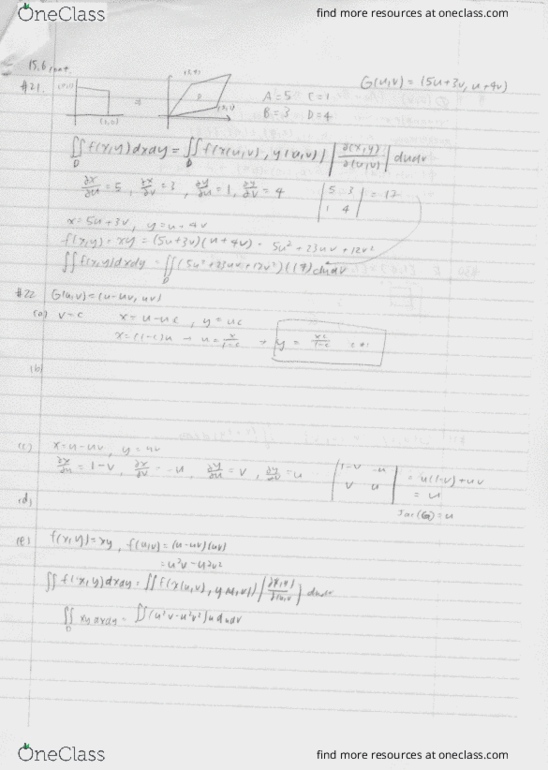 OneClass
find more resources at oneclass.com
15.6
#21.
G(u,v) = (5u+3v, u+4v)
A=5 C=1
B=3 D=4
∬_D f(x,y)dxdy = ∬_D f(x(u,v), y(u,v)) |∂(x,y)/∂(u,v)| dudv
∂x/∂u = 5, ∂x/∂v = 3, ∂y/∂u = 1, ∂y/∂v = 4
|5 3
1 4|
x=5u+3v, y=u+4v
f(x,y) = xy = (5u+3v)(u+4v) = 5u²+23uv+12v²
∬f(x,y)dxdy = ∬_D (5u²+23uv+12v²)(17)dudv
#22 G(u,v)=(u-uv, uv)
(a) v=c x=u-uc, y=uc
x=(1-c)u → u=x/1-c → y = xc/1-c
(b)
(c) x=u-uv, y=uv
∂x/∂u = 1-v, ∂x/∂v = -u, ∂y/∂u = v, ∂y/∂v = u
|1-v -u
v u| = u(1-v)+uv
= u
Jac(G)=u
(d)
(e) f(x,y)=xy, f(u,v)=(u-uv)(uv)
=u²v-u²v²
∬f(x,y)dxdy = ∬f(x(u,v), y(u,v)) |∂(x,y)/∂(u,v)| dudv
∬_D xy dxdy = ∬(u²v-u²v²)u dudv
OneClass
find more resources at oneclass.com